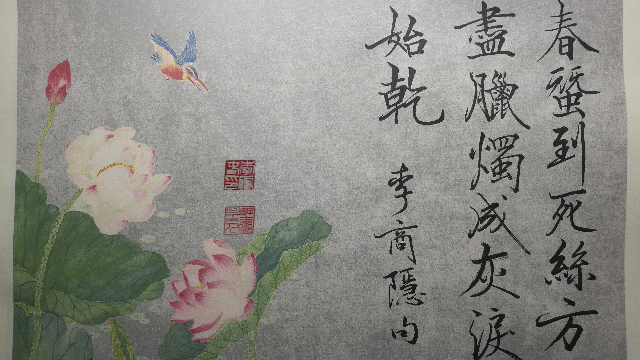 春蚕到死絲方
盡臘燭成灰淚
始乾
李商隱句